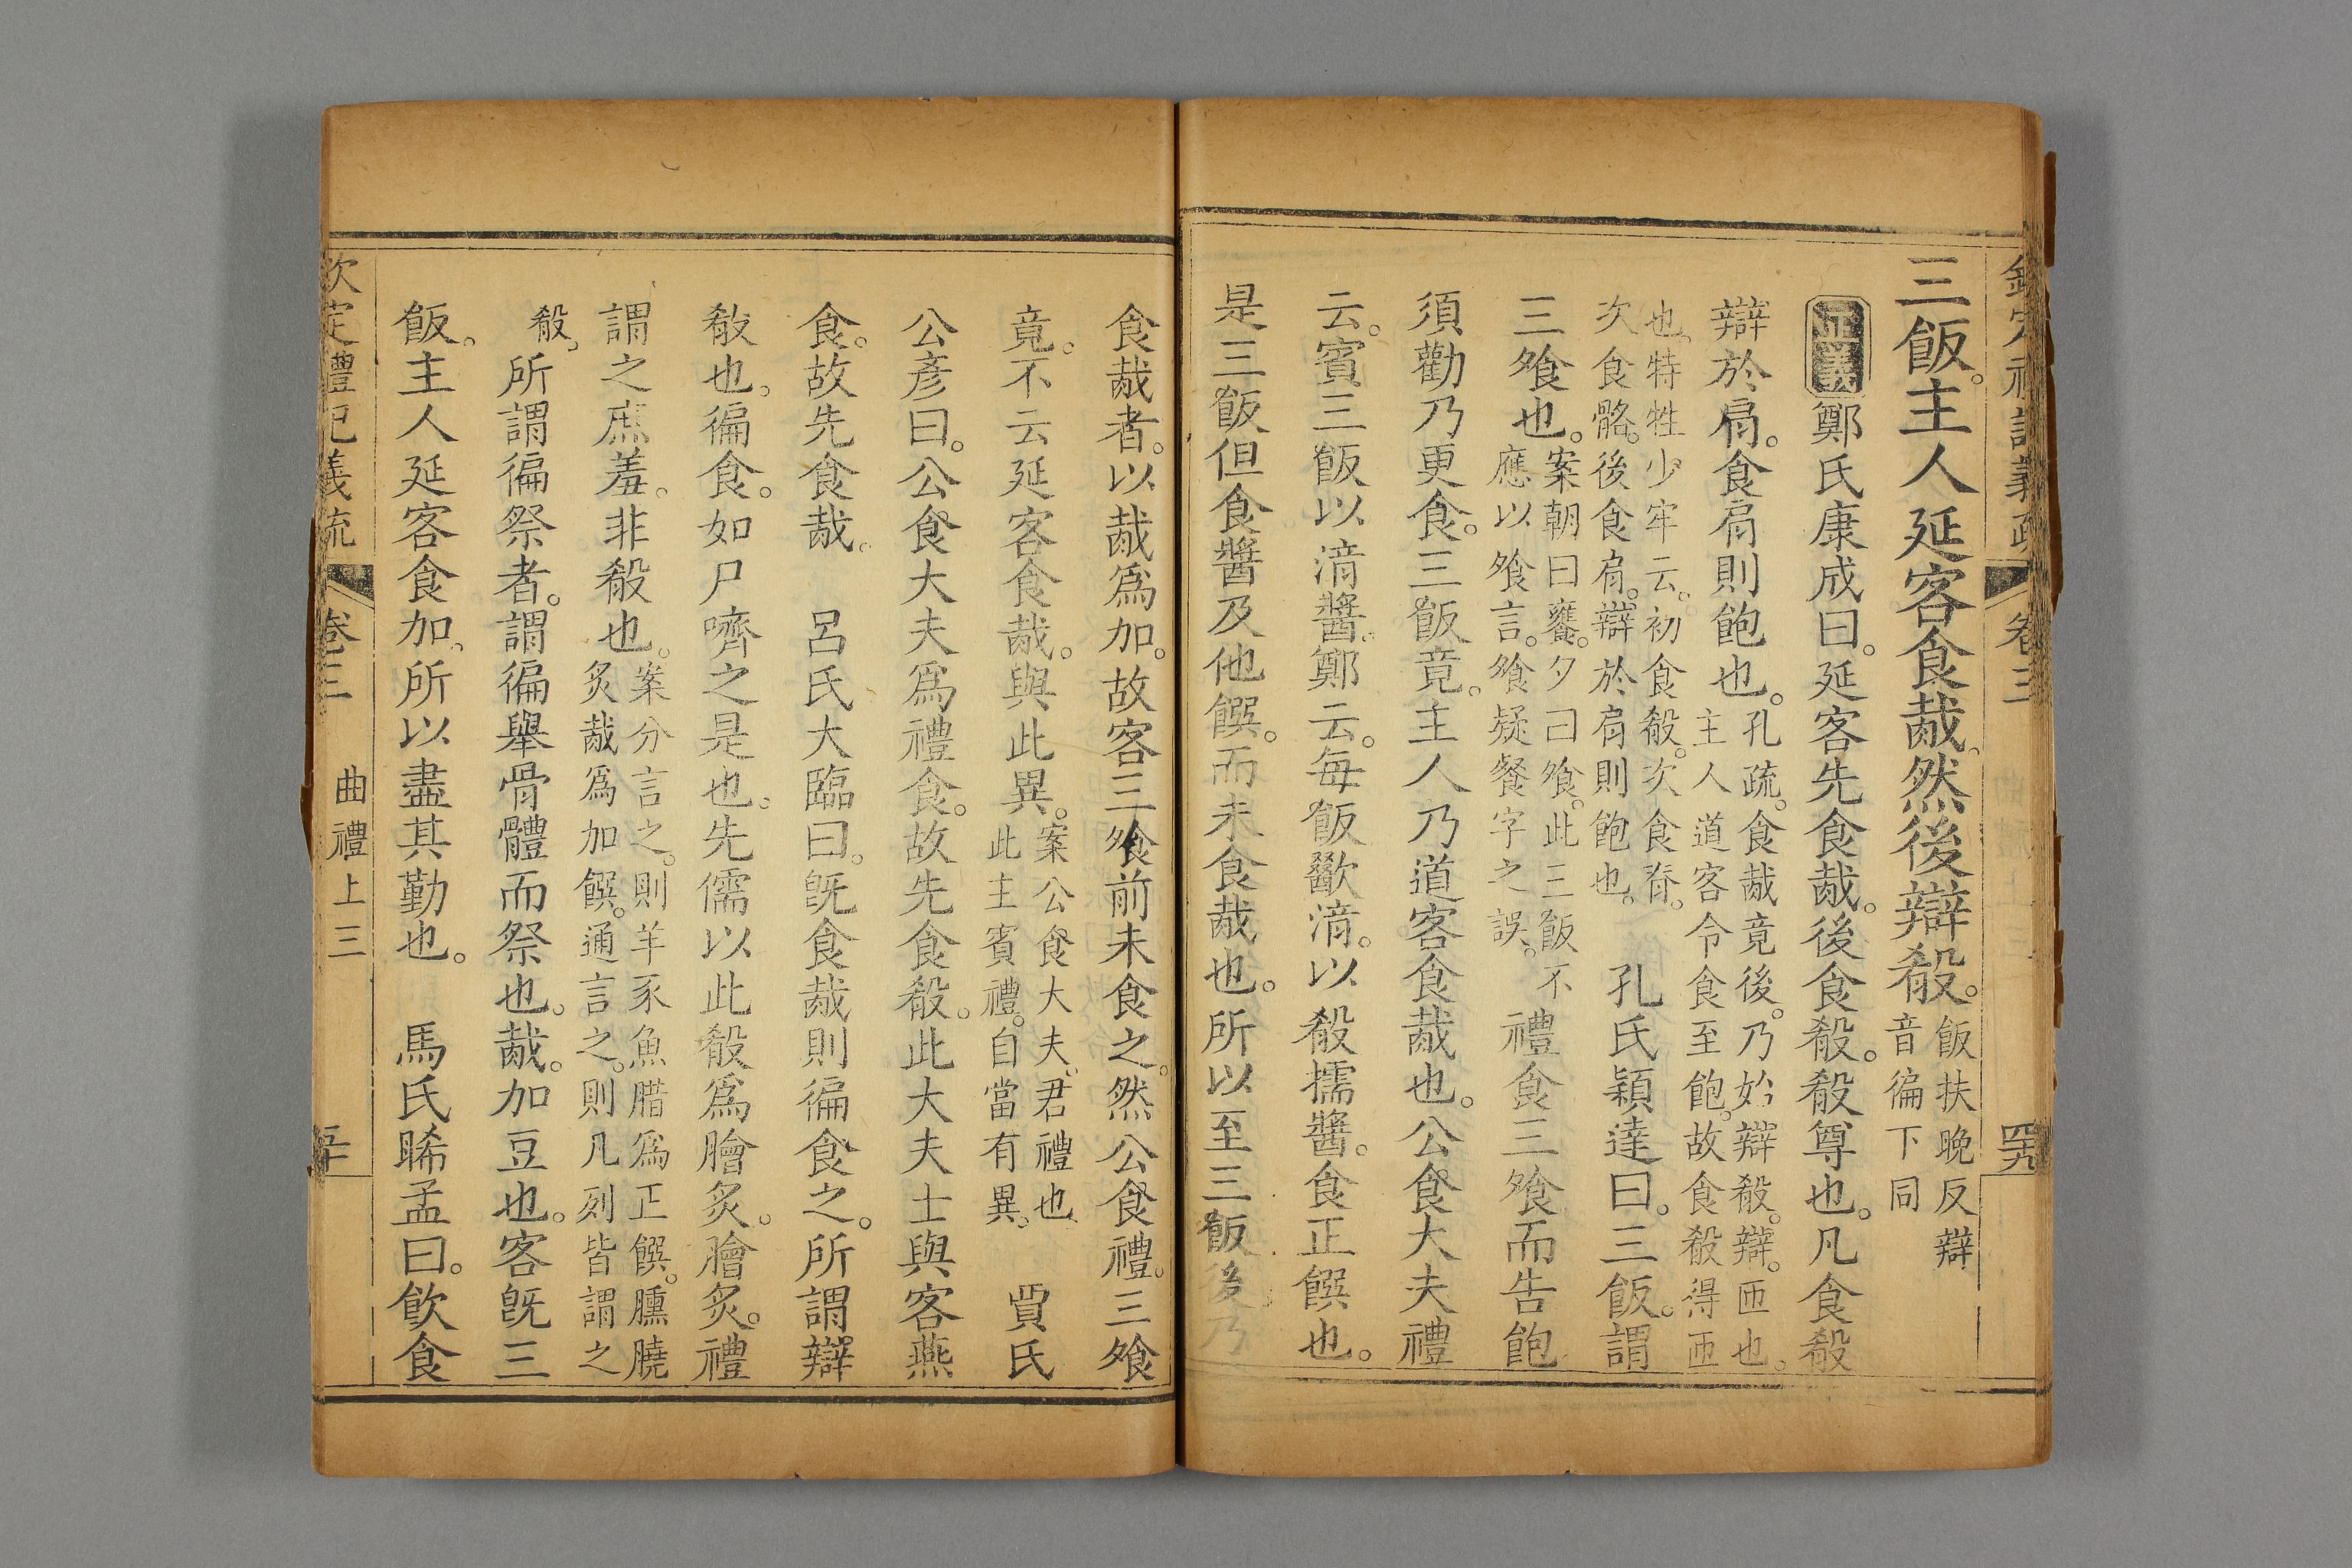 欽定禮記義疏 卷三 四九
三飯。主人延客食胾。然後辯殽。飯扶晚反辯
音徧下同
正義 鄭氏康成曰。延客先食胾。後食殽。殽尊也。凡食殽
辯於肩。食肩則飽也。孔疏。食胾竟後。乃始辯殽。辯。匝也。
主人道客令食至飽。故食殽得匝
也。特牲少牢云。初食殽。次食脊。
次食骼。後食肩。辯於肩則飽也。 孔氏穎達曰。三飯。謂
三飧也。案朝曰饔。夕曰飧。此三飯不
應以飧言。飧疑餐字之誤。禮食三飧而告飽
須勸乃更食。三飯竟。主人乃道客食胾也。公食大夫禮
云。賓三飯以湇醬。鄭云。每飯歠湇。以殽擩醬。食正饌也。
是三飯但食醬及他饌。而未食胾也。所以至三飯後乃
食胾者。以胾爲加。故客三飧前未食之。然公食禮。三飧
竟。不云延客食胾。與此異。案公食大夫。君禮也
此主賓禮。自當有異。 賈氏
公彥曰。公食大夫爲禮食。故先食殽。此大夫士與客燕
食。故先食胾。 呂氏大臨曰。旣食胾則徧食之。所謂辯
殽也。徧食。如尸嚌之是也。先儒以此殽爲膾炙。膾炙。禮
謂之庶羞。非殽也。案分言之。則羊豕魚腊爲正饌。臐膮
炙胾爲加饌。通言之。則凡列皆謂之
殽。所謂徧祭者。謂徧舉骨體而祭也。胾。加豆也。客旣三
飯。主人延客食加。所以盡其勤也。 馬氏晞孟曰。飮食
欽定禮記義疏 卷三 曲禮上三 五十